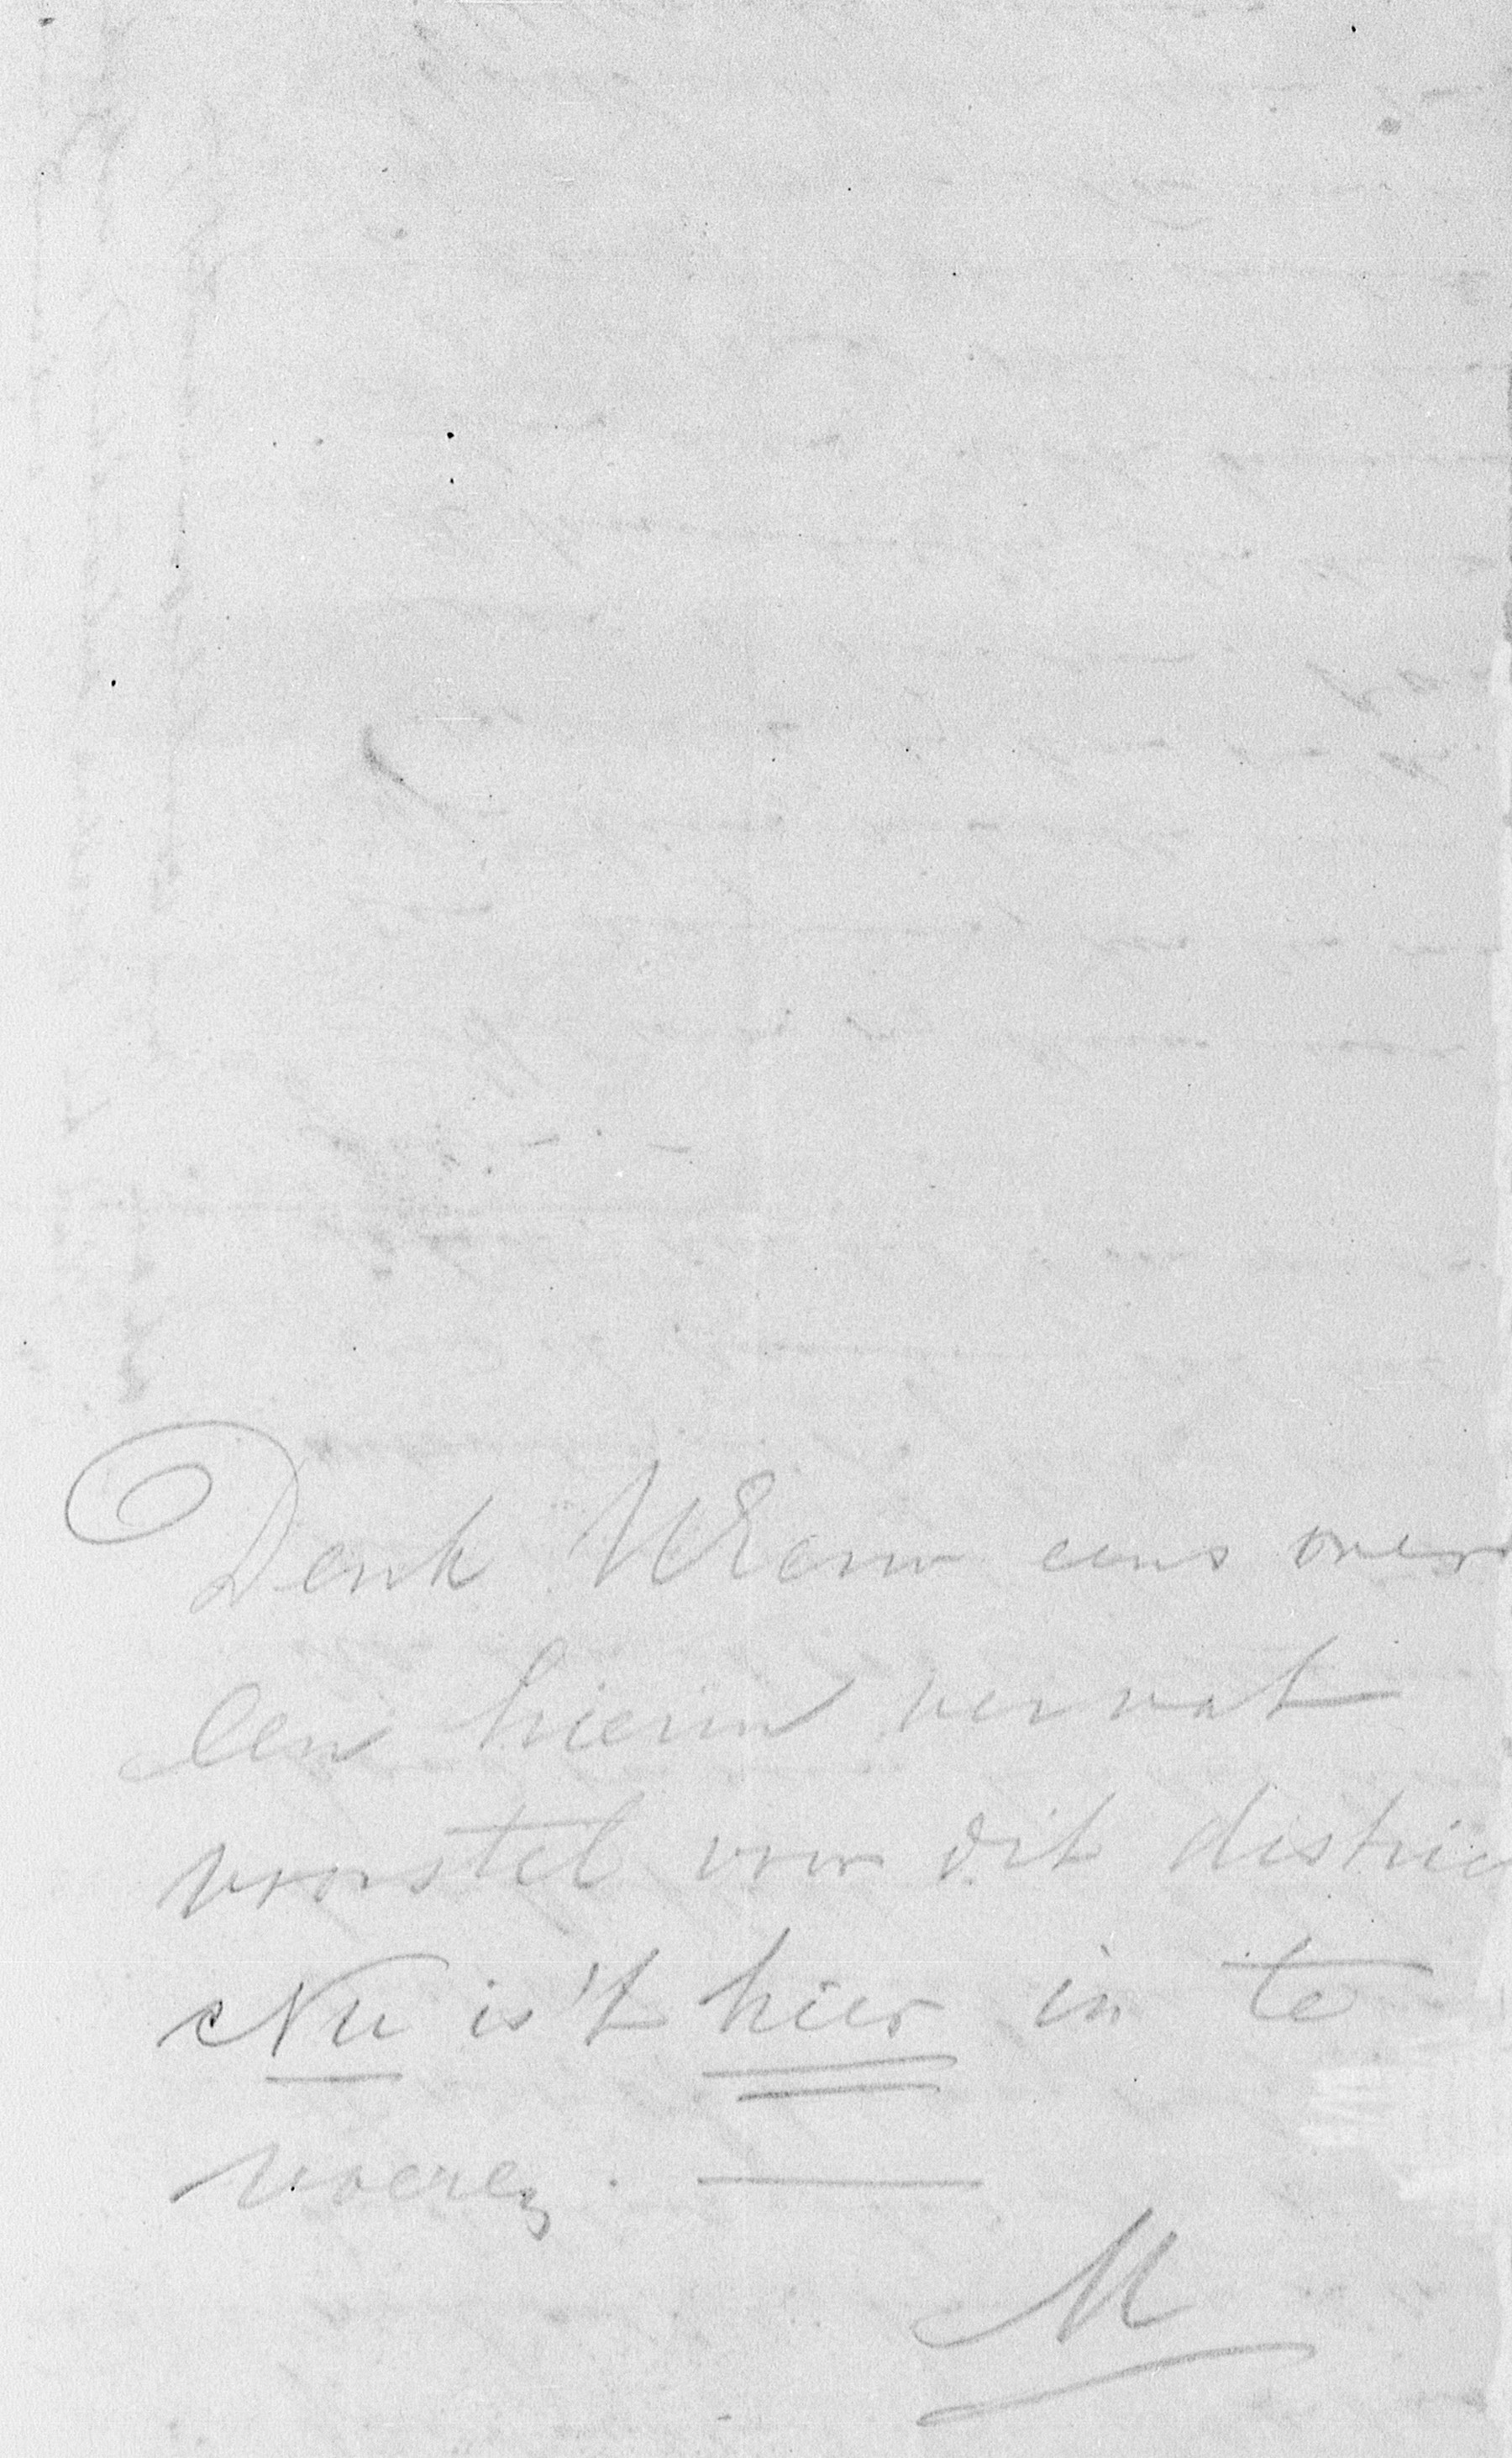 Denk UEerw eens over
een hierin vervat
voorstel voor dit distric
Nu is 't hier in te
voeren. —
M